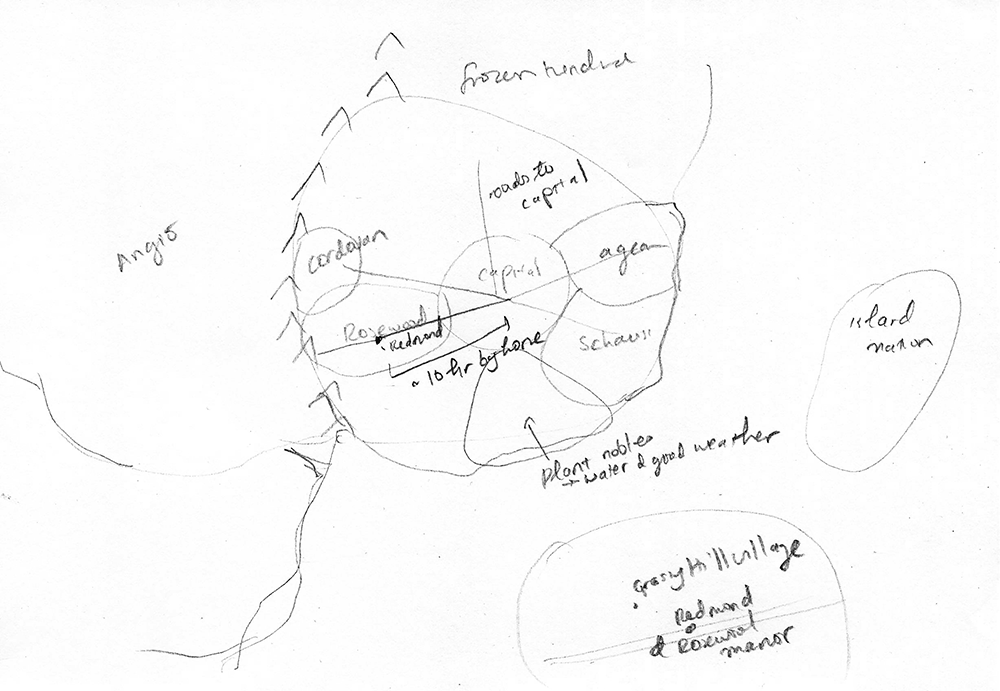 frozen tundra
roads to
capital
Angio
cordovan
capital
agea
Rosewood
Redmond
~10 hr by horse
Schauss
island
nation
plant nobles
+ water & good weather
Grassy Hill village
Redmond
& Rosewood
manor